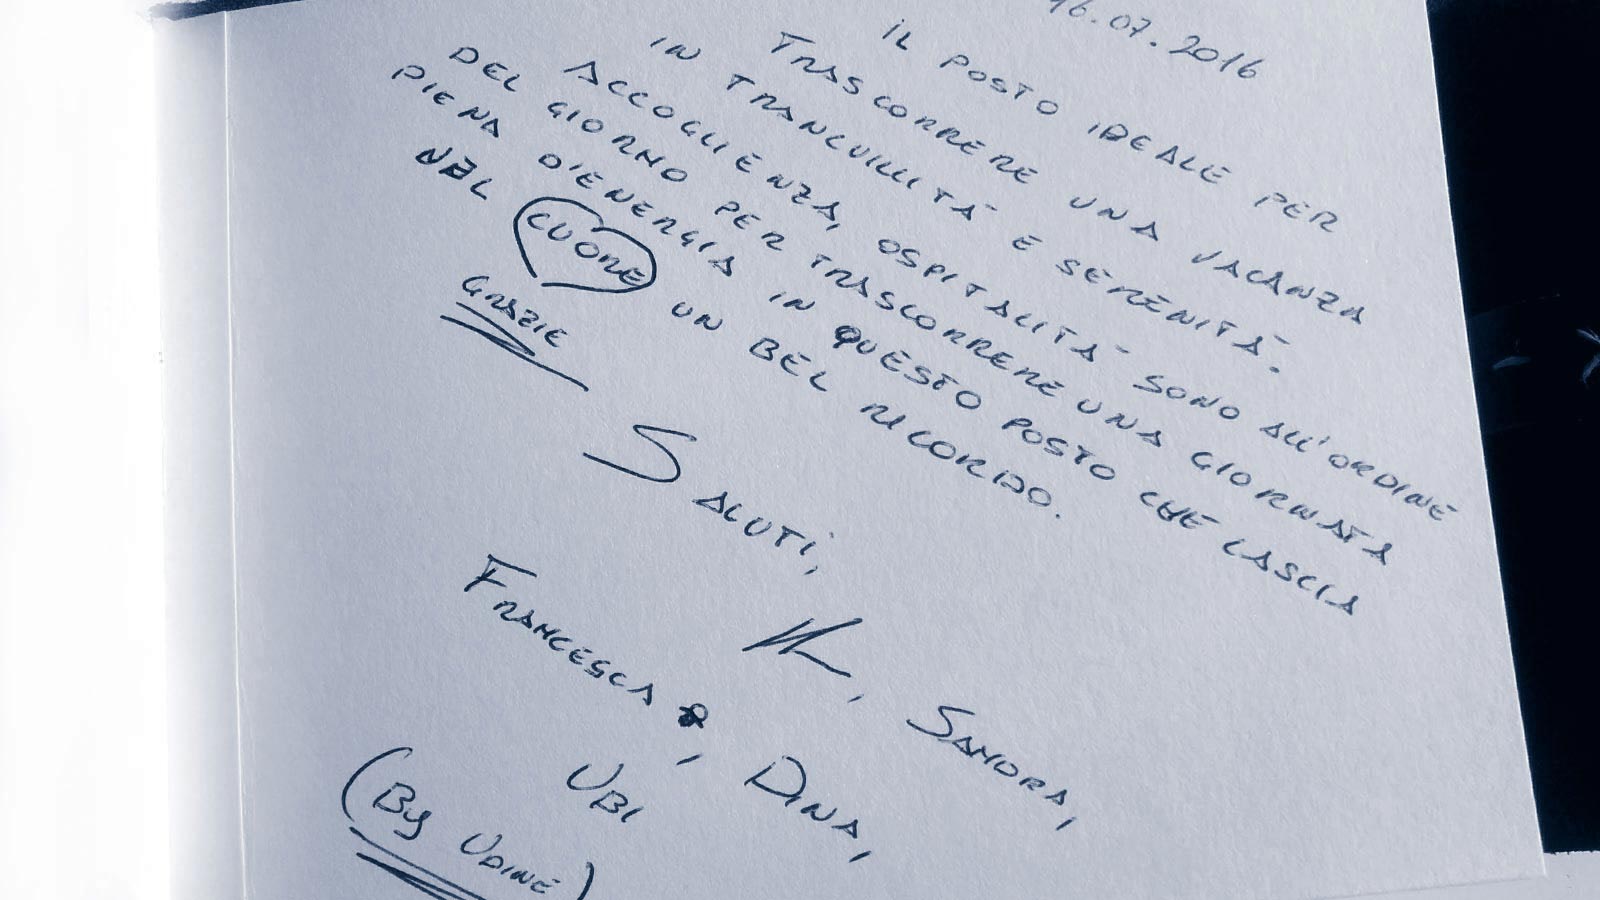 16.07.2016
IL POSTO IDEALE PER
TRASCORRERE UNA VACANZA
IN TRANQUILLITA' E SERENITA'.
ACCOGLIENZA, OSPITALITA' SONO ALL'ORDINE
DEL GIORNO PER TRASCORRERE UNA GIORNATA
PIENA D'ENERGIA IN QUESTO POSTO CHE LASCIA
NEL CUORE UN BEL RICORDO.
GRAZIE
SALUTI,
SANDRA,
FRANCESCA, DINA,
UBI
(By UDINE)